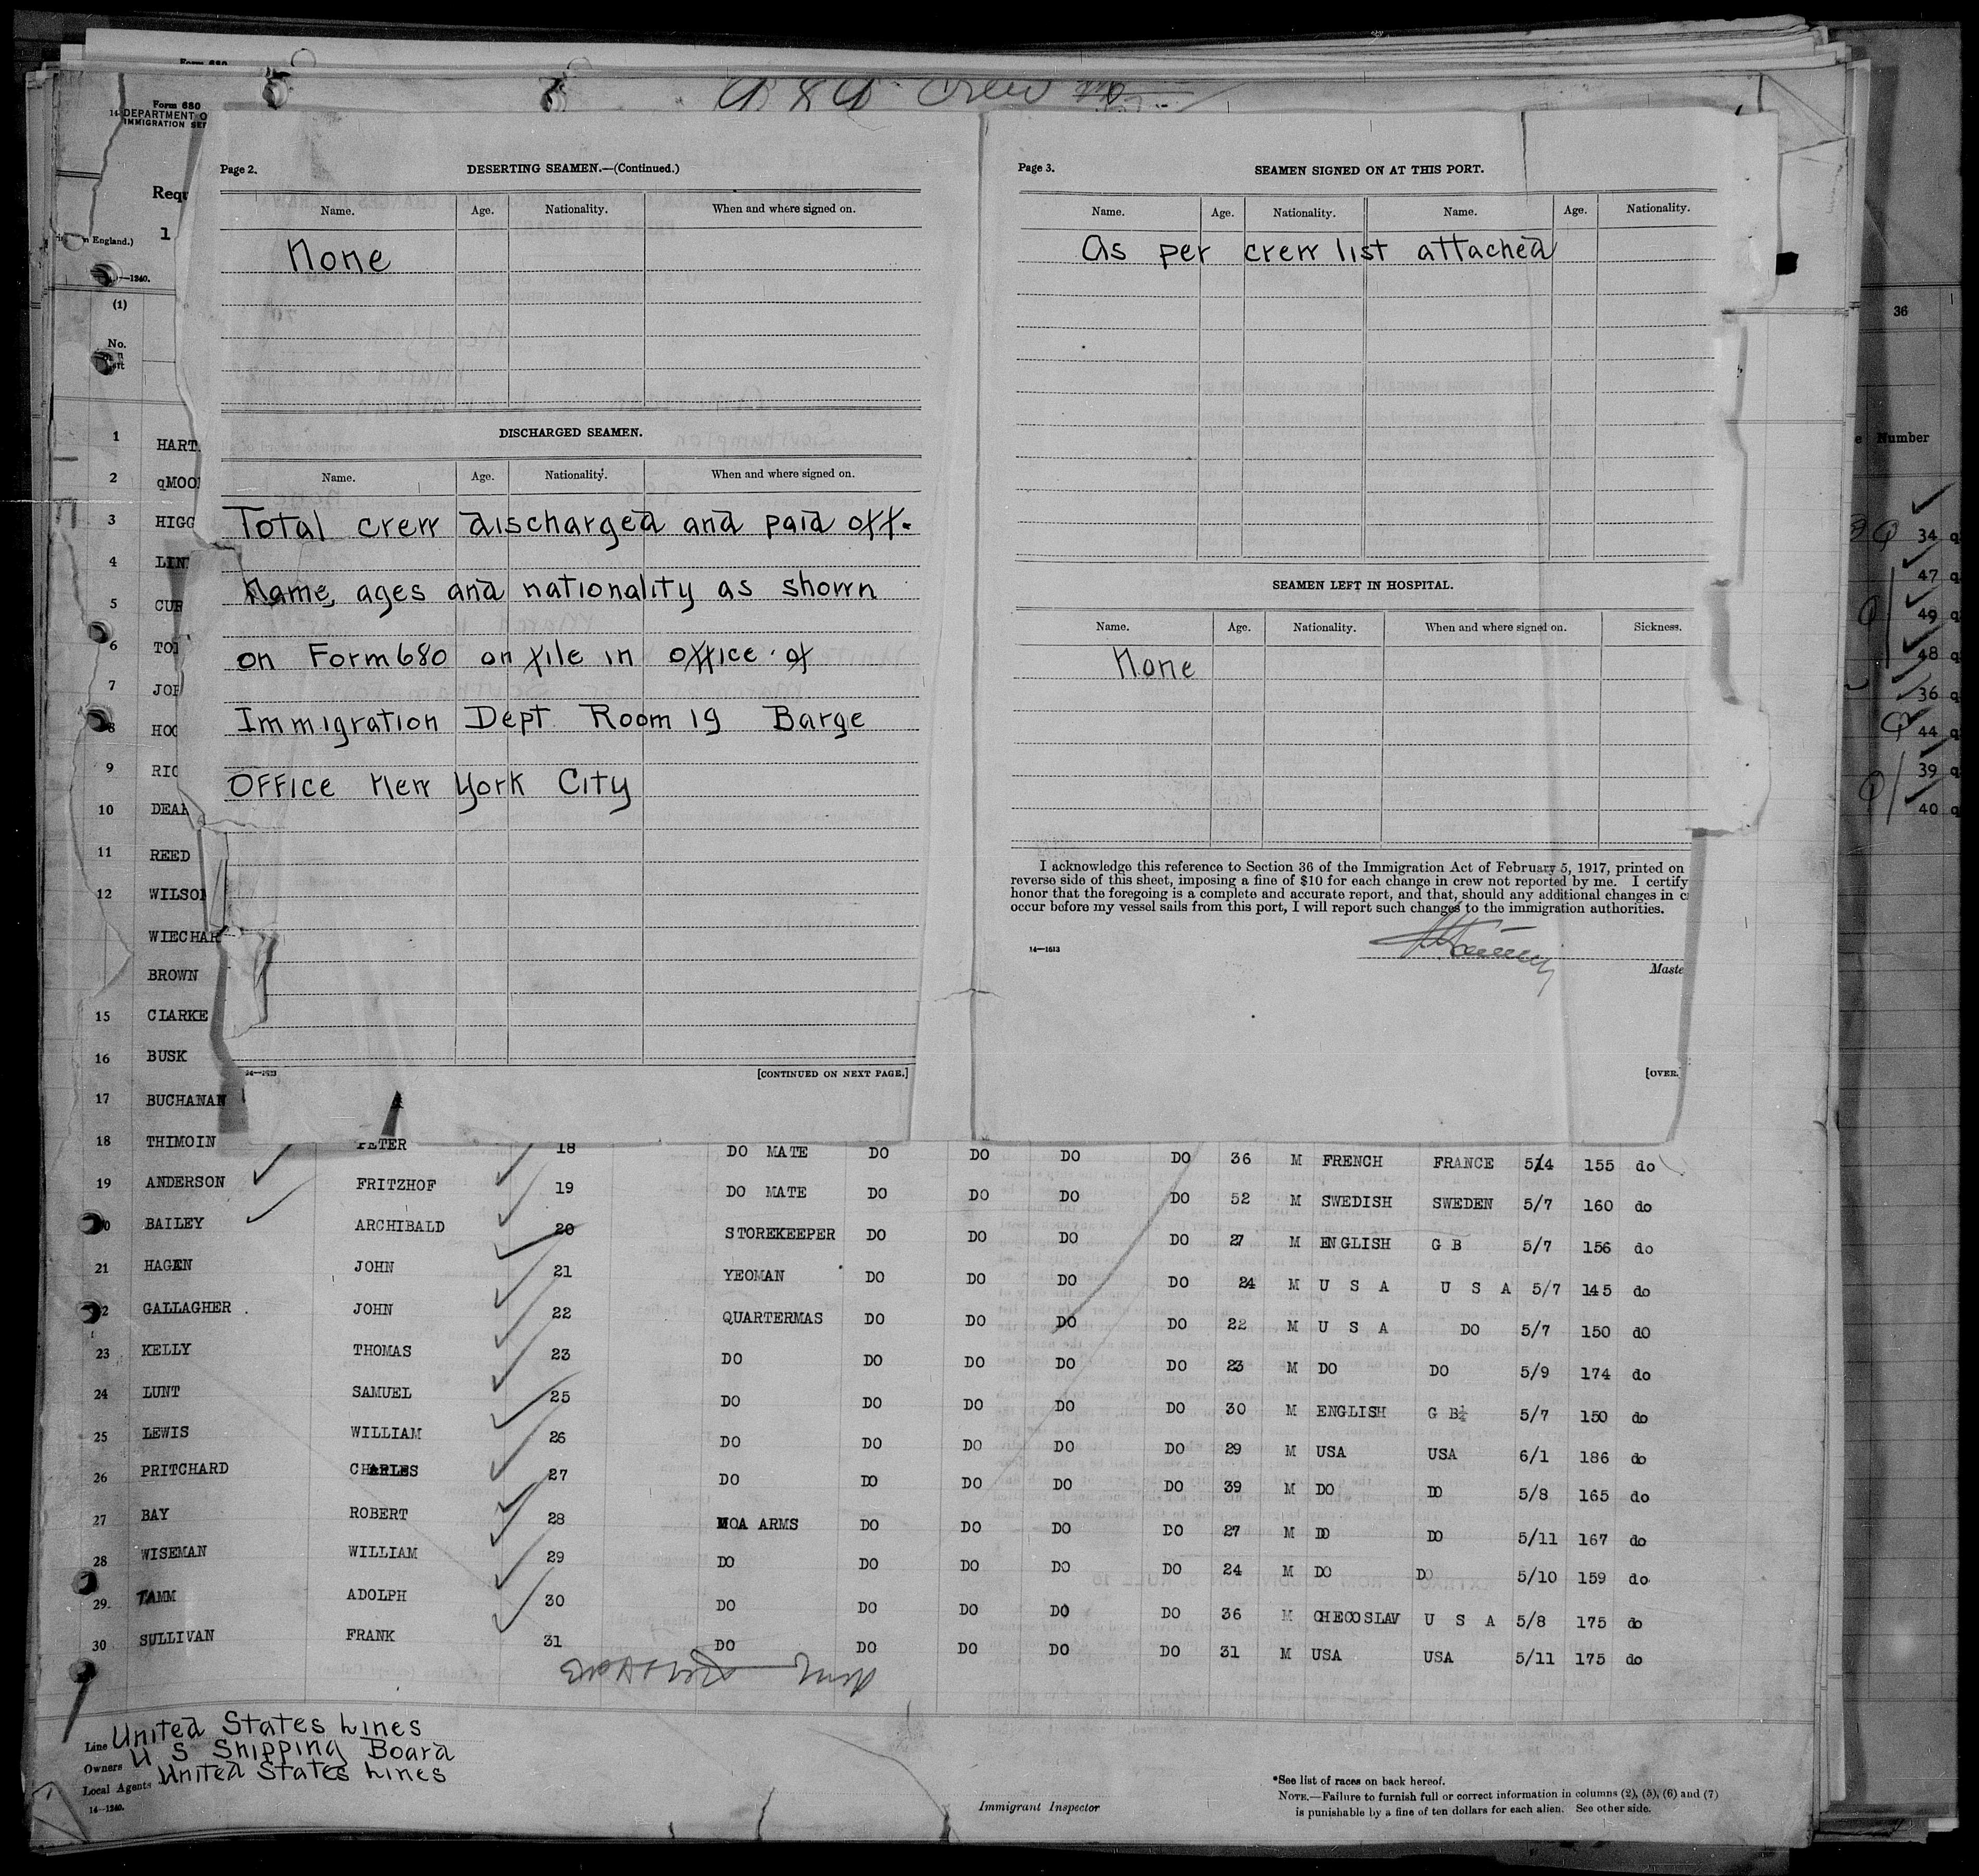 Form 680
Form 680
DEPARTMENT O
IMMIGRATION SE
Crew
Requ
1
n England.)
—1240.
(1)
No.
36
Number
34 q
47 q
49 q
48 q
36 q
44 q
39 q
40 q
Page 2. DESERTING SEAMEN.—(Continued.)
Name. Age. Nationality. When and where signed on.
None
DISCHARGED SEAMEN.
Name. Age. Nationality. When and where signed on.
Total crew discharged and paid off.
Name, ages and nationality as shown
on Form 680 on file in office of
Immigration Dept Room 19 Barge
Office New York City
[CONTINUED ON NEXT PAGE.]
Page 3. SEAMEN SIGNED ON AT THIS PORT.
Name. Age. Nationality. Name. Age. Nationality.
As per crew list attached
SEAMEN LEFT IN HOSPITAL.
Name. Age. Nationality. When and where signed on. Sickness.
None
I acknowledge this reference to Section 36 of the Immigration Act of February 5, 1917, printed on
reverse side of this sheet, imposing a fine of $10 for each change in crew not reported by me. I certify
honor that the foregoing is a complete and accurate report, and that, should any additional changes in c
occur before my vessel sails from this port, I will report such changes to the immigration authorities.
14—1613
Maste
[OVER.]
1 HART
2 qMOO
3 HIGG
4 LIN
5 CUR
6 TO
7 JOH
8 HOO
9 RIC
10 DEAR
11 REED
12 WILSON
WIECHAR
BROWN
15 CLARKE
16 BUSK
17 BUCHANAN
18 THIMOIN PETER 18 DO MATE DO DO DO DO 36 M FRENCH FRANCE 5/4 155 do
19 ANDERSON FRITZHOF 19 DO MATE DO DO DO DO 52 M SWEDISH SWEDEN 5/7 160 do
20 BAILEY ARCHIBALD 20 STOREKEEPER DO DO DO DO 27 M ENGLISH G B 5/7 156 do
21 HAGEN JOHN 21 YEOMAN DO DO DO DO 24 M U S A U S A 5/7 145 do
22 GALLAGHER JOHN 22 QUARTERMAS DO DO DO DO 22 M U S A DO 5/7 150 dO
23 KELLY THOMAS 23 DO DO DO DO DO 23 M DO DO 5/9 174 do
24 LUNT SAMUEL 25 DO DO DO DO DO 30 M ENGLISH G B½ 5/7 150 do
25 LEWIS WILLIAM 26 DO DO DO DO DO 29 M USA USA 6/1 186 do
26 PRITCHARD CHARLES 27 DO DO DO DO DO 39 M DO DO 5/8 165 do
27 BAY ROBERT 28 MOA ARMS DO DO DO DO 27 M DO DO 5/11 167 do
28 WISEMAN WILLIAM 29 DO DO DO DO DO 24 M DO DO 5/10 159 do
29. TAMM ADOLPH 30 DO DO DO DO DO 36 M CHECOSLAV U S A 5/8 175 do
30 SULLIVAN FRANK 31 DO DO DO DO DO 31 M USA USA 5/11 175 do
Line United States Lines
Owners U S Shipping Board
Local Agents United States Lines
14—1240.
Immigrant Inspector
*See list of races on back hereof.
NOTE.—Failure to furnish full or correct information in columns (2), (5), (6) and (7)
is punishable by a fine of ten dollars for each alien. See other side.